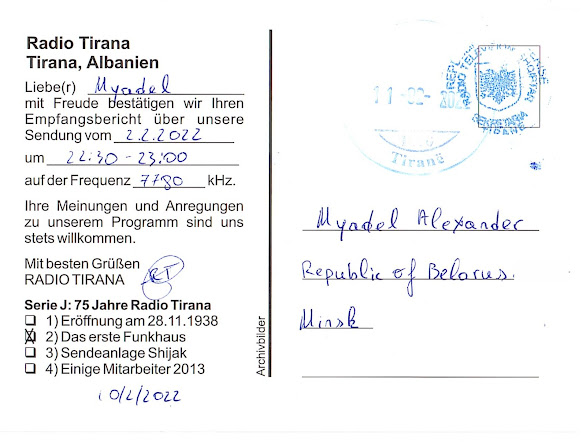 Radio Tirana
Tirana, Albanien
Liebe(r) Myadel
mit Freude bestätigen wir Ihren
Empfangsbericht über unsere
Sendung vom 2.2.2022
um 22:30 - 23:00
auf der Frequenz 7780 kHz.
Ihre Meinungen und Anregungen
zu unserem Programm sind uns
stets willkommen.
Mit besten Grüßen
RADIO TIRANA RT
Serie J: 75 Jahre Radio Tirana
1) Eröffnung am 28.11.1938
2) Das erste Funkhaus
3) Sendeanlage Shijak
4) Einige Mitarbeiter 2013
10/2/2022
Archivbilder
Tiranë
Myadel Alexander
Republic of Belarus.
Minsk